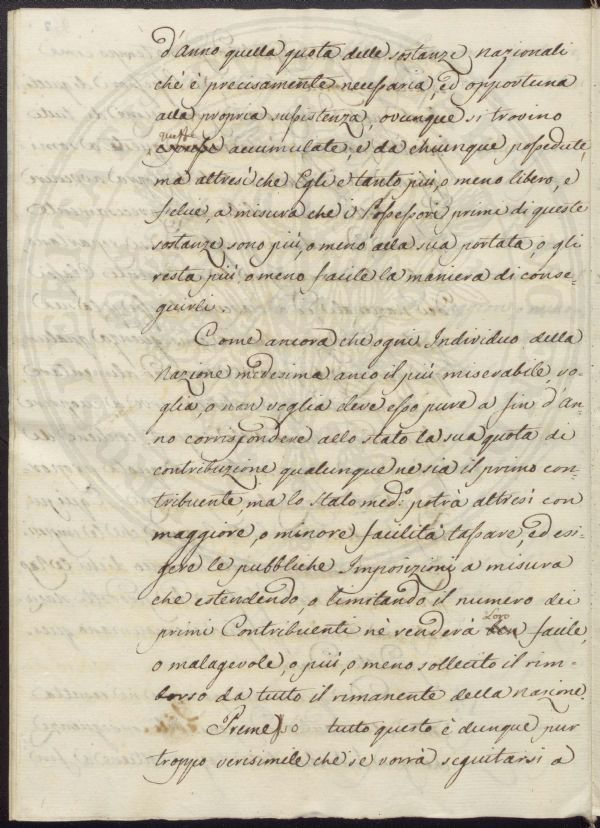 d'anno quella quota delle sostanze nazionali
ch'è precisamente necessaria, ed opportuna
alla propria sussistenza, ovunque si trovino
queste
accumulate, e da chiunque possedute,
ma altresì che Egli è tanto più, o meno libero, e
felice, a misura che i Possessori primi di queste
sostanze sono più, o meno alla sua portata, o gli
resta più, o meno facile la maniera di conse-
guirli.
Come ancora che ogni Individuo della
Nazione medesima anco il più miserabile, vo-
glia, o non voglia deve esso pure a fin d'an-
no corrispondere allo stato la sua quota di
contribuzione qualunque ne sia il primo con-
tribuente, ma lo Stato med.º potrà altresì con
maggiore, o minore facilità tassare, ed esi-
gere le pubbliche Imposizioni a misura
che estendendo, o limitando il numero dei
Loro
primi Contribuenti nè renderà facile,
o malagevole, o più, o meno sollecito il rim-
borso da tutto il rimanente della Nazione.
Premesso tutto questo è dunque pur
troppo verisimile che se vorrà seguitarsi a